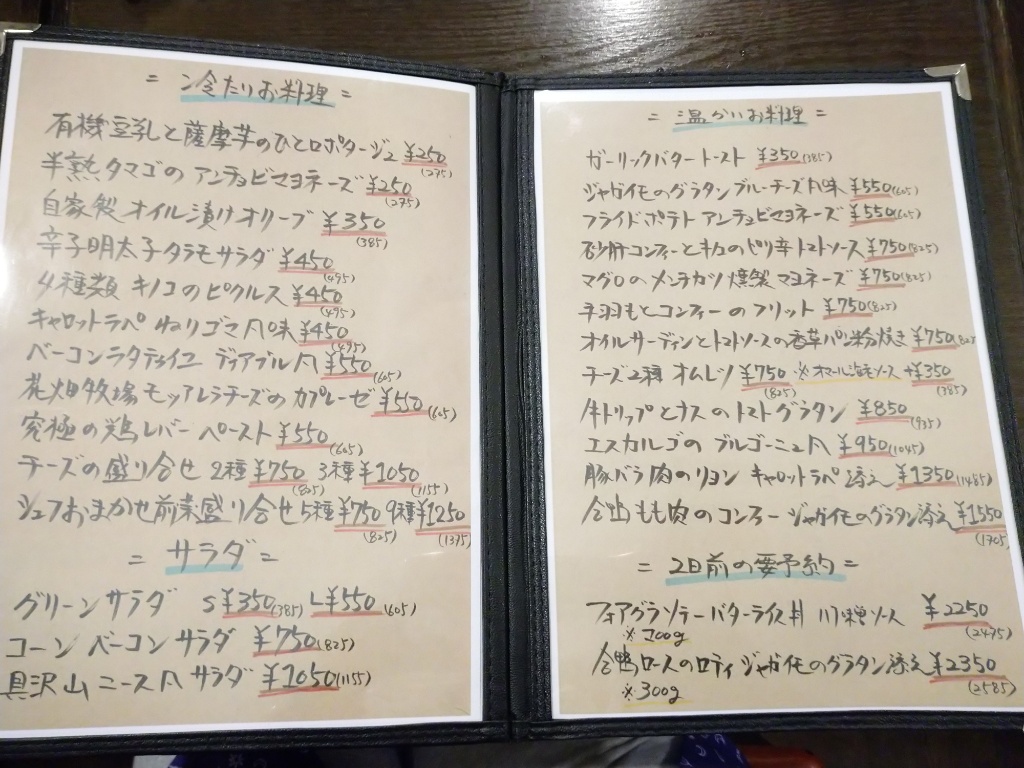 = 冷たいお料理 =
有機豆乳と薩摩芋のひとロポタージュ ¥250 (275)
半熟タマゴのアンチョビマヨネーズ ¥250 (275)
自家製オイル漬けオリーブ ¥350 (385)
辛子明太子タラモサラダ ¥450 (495)
4種類キノコのピクルス ¥450 (495)
キャロットラペ ねりゴマ風味 ¥450 (495)
ベーコンラタティイユ ディアブル風 ¥550 (605)
花畑牧場モッツァレラチーズのカプレーゼ ¥550 (605)
究極の鶏レバーペースト ¥550 (605)
チーズの盛り合せ 2種 ¥750 (825) 3種 ¥1050 (1155)
シェフおまかせ前菜盛り合せ 5種 ¥750 (825) 9種 ¥1250 (1375)
= サラダ =
グリーンサラダ S ¥350 (385) L ¥550 (605)
コーンベーコンサラダ ¥750 (825)
具沢山ニース風サラダ ¥1050 (1155)
= 温かいお料理 =
ガーリックバタートースト ¥350 (385)
ジャガイモのグラタンブルーチーズ風味 ¥550 (605)
フライドポテト アンチョビマヨネーズ ¥550 (605)
砂肝コンフィーとキュのピリ辛トマトソース ¥750 (825)
マグロのメンチカツ 燻製マヨネーズ ¥750 (825)
手羽もとコンフィーのフリット ¥750 (825)
オイルサーディンとトマトソースの香草パン粉焼き ¥750 (825
チーズ2種オムレツ ¥750 (825) ※オマール海老ソース +¥350 (385)
牛トリップとナスのトマトグラタン ¥850 (935)
エスカルゴのブルゴーニュ風 ¥950 (1045)
豚バラ肉のリヨン キャロットラペ添え ¥1350 (1485)
合鴨もも肉のコンフィー ジャガイモのグラタン添え ¥1550 (1705)
= 2日前の要予約 =
フォアグラソテーバターライス丼 八丁味噌ソース ¥2250 (2475)
※200g
合鴨ロースのロティ ジャガイモのグラタン添え ¥2350 (2585)
※300g